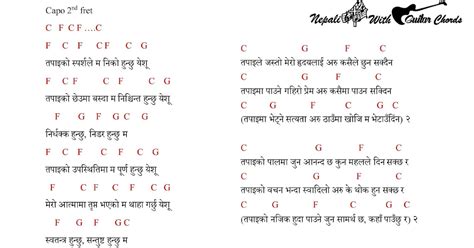 Capo 2nd fret
Nepali With Guitar Chords
C F CF ....C
F C F CF C G
तपाइको स्पर्शले म निको हुन्छु येशू
F C F CF C G
तपाइको छेउमा बस्दा म निश्चिन्त हुन्छु येशू
F G F GC G
निर्धक्क हुन्छु, निडर हुन्छु म
F C F CF C G
तपाइको उपस्थितिमा म पूर्ण हुन्छु येशू
F C F CF C G
मेरो आत्मामा तृप्त भएको म थाहा गर्छु येशू
F G F GC
स्वतन्त्र हुन्छु, सन्तुष्ट हुन्छु म
C G F C
तपाइले जस्तो मेरो हृदयलाई अरु कसैले छुन सक्दैन
C G F C
तपाइमा पाउने गहिरो प्रेम अरु कसैमा पाउन सक्दिन
C G F C
(तपाइमा भेट्ने सत्यता अरु ठाउँमा खोजि म भेटाउँदिन) २
C G F C
तपाइको पालमा जुन आनन्द छ कुन महलले दिन सक्छ र
C G F C
तपाइको वचन भन्दा स्वादिलो अरु के थोक हुन सक्छ र
C G F C
(तपाइको नजिक हुदा पाउने जुन सामर्थ छ, कहाँ पाउँछु र) २